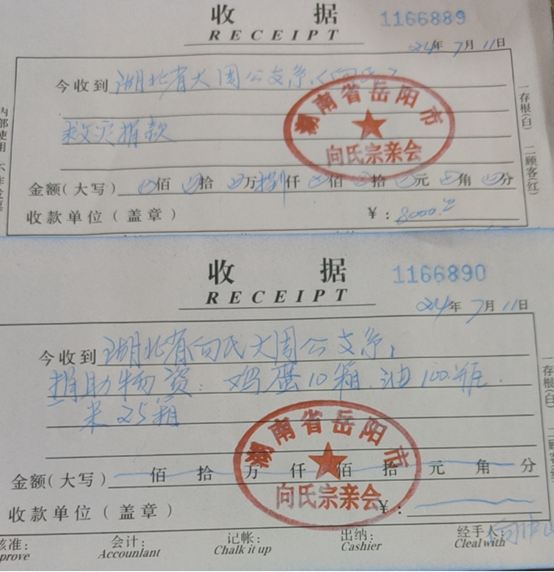 收 据
1166889
RECEIPT
24年7月11日
今收到 湖北省大周公支系（向氏）
救灾捐款
湖南省岳阳市
向氏宗亲会
金额(大写) 佰 拾 万 捌仟 佰 拾 元 角 分
收款单位(盖章) ¥:8000.00
一存根(白) 二顾客(红)
收 据
1166890
RECEIPT
24年7月11日
今收到 湖北省向氏大周公支系,
捐助物资: 鸡蛋10箱.油100瓶.
米25箱
湖南省岳阳市
向氏宗亲会
金额(大写) 佰 拾 万 仟 佰 拾 元 角 分
收款单位(盖章) ¥:
一存根(白) 二顾客
核准: 会计: 记帐: 出纳: 经手人:
prove Accountant Chalk it up Cashier Cleal with